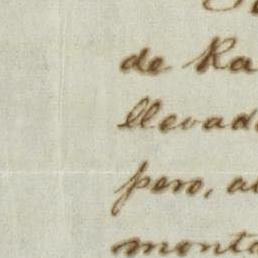 de Ra
llevad
pero, a
mont